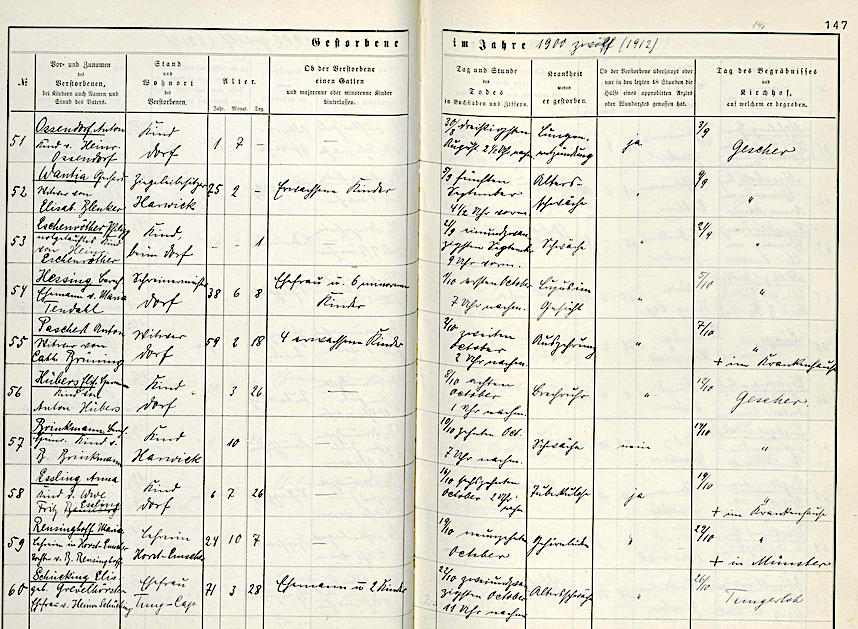 146
147
Gestorbene
im Jahre 1900 zwölf (1912)
№
Vor- und Zunamen
des
Verstorbenen,
bei Kindern auch Namen und
Stand des Vaters.
Stand
und
Wohnort
des
Verstorbenen.
Alter.
Jahr. Monat. Tag.
Ob der Verstorbene
einen Gatten
und majorenne oder minorenne Kinder
hinterlassen.
Tag und Stunde
des
Todes
in Buchstaben und Ziffern.
Krankheit
woran
er gestorben.
Ob der Verstorbene überhaupt oder
nur in den letzten 48 Stunden die
Hülfe eines approbirten Arztes
oder Wundarztes genossen hat.
Tag des Begräbnisses
und
Kirchhof,
auf welchem er begraben.
51
Ossendorf, Anton
Kind v. Heinr.
Ossendorf
Kind
Dorf
1 7 –
–
30/8 dreißigsten
August 2½ Uhr nachm.
Lungen-
entzündung
ja
3/9
Gescher
52
Wantia Gerhard
Witwer von
Elisab. Blenker
Ziegeleibesitzer
Harwick
75 2 –
Erwachsene Kinder
5/9 fünften
September
4 1/2 Uhr vorm.
Alters-
schwäche
"
9/9
"
53
Eschenröther
notgetauftes Kind
von Heinr.
Eschenröther
Kind,
beim Dorf
– – 1
–
21/9 einundzwan-
zigsten September
9 Uhr vorm.
Schwäche
"
21/9
"
54
Hessing Bernh.
Ehemann v. Maria
Tendahl
Schreinermeister
Dorf
38 6 8
Ehefrau u. 6 minorenne
Kinder
1/10 ersten October
7 Uhr nachm.
Gesicht
5/10
"
55
Paschert Anton
Witwer von
Cath. Brüning
Witwer
Dorf
59 2 18
4 erwachsene Kinder
2/10 zweiten
October
2 Uhr nachm.
Auszehrung
"
7/10
"
+ im Krankenhause
56
Hübers
Kind von
Anton Hübers
Kind
Dorf
" 3 26
–
8/10 achten
October
1 Uhr nachm.
Brechruhr
"
Gescher
57
Brinkmann, Bernh.
Kind v.
B. Brinkmann
Kind
Harwick
10
10/10 zehnten Oct.
7 Uhr nachm.
Schwäche
nein
"
58
Essling Anna
Kind v. Wwe
Fritz Essling
Kind
Dorf
6 7 26
–
16/10 sechszehnten
October 2 Uhr
nachm.
Tuberkulose
ja
19/10
"
+ im Krankenhause
59
Rensinghoff Maria
Lehrerin in Horst-Emscher
Tochter v. B. Rensinghoff
Lehrerin
Horst-Emscher
24 10 7
–
19/10 neunzehnten
October
Gehirnleiden
"
"
+ in Münster
60
Schücking Elis.
geb. Grevelhörster
Ehefrau v. Heinr. Schücking
Ehefrau
Tung-Cap.
71 3 28
Ehemann u 2 Kinder
22/10 zweiundzwan-
zigsten October
11 Uhr nachm.
Altersschwäche
"
26/10
Tungerloh